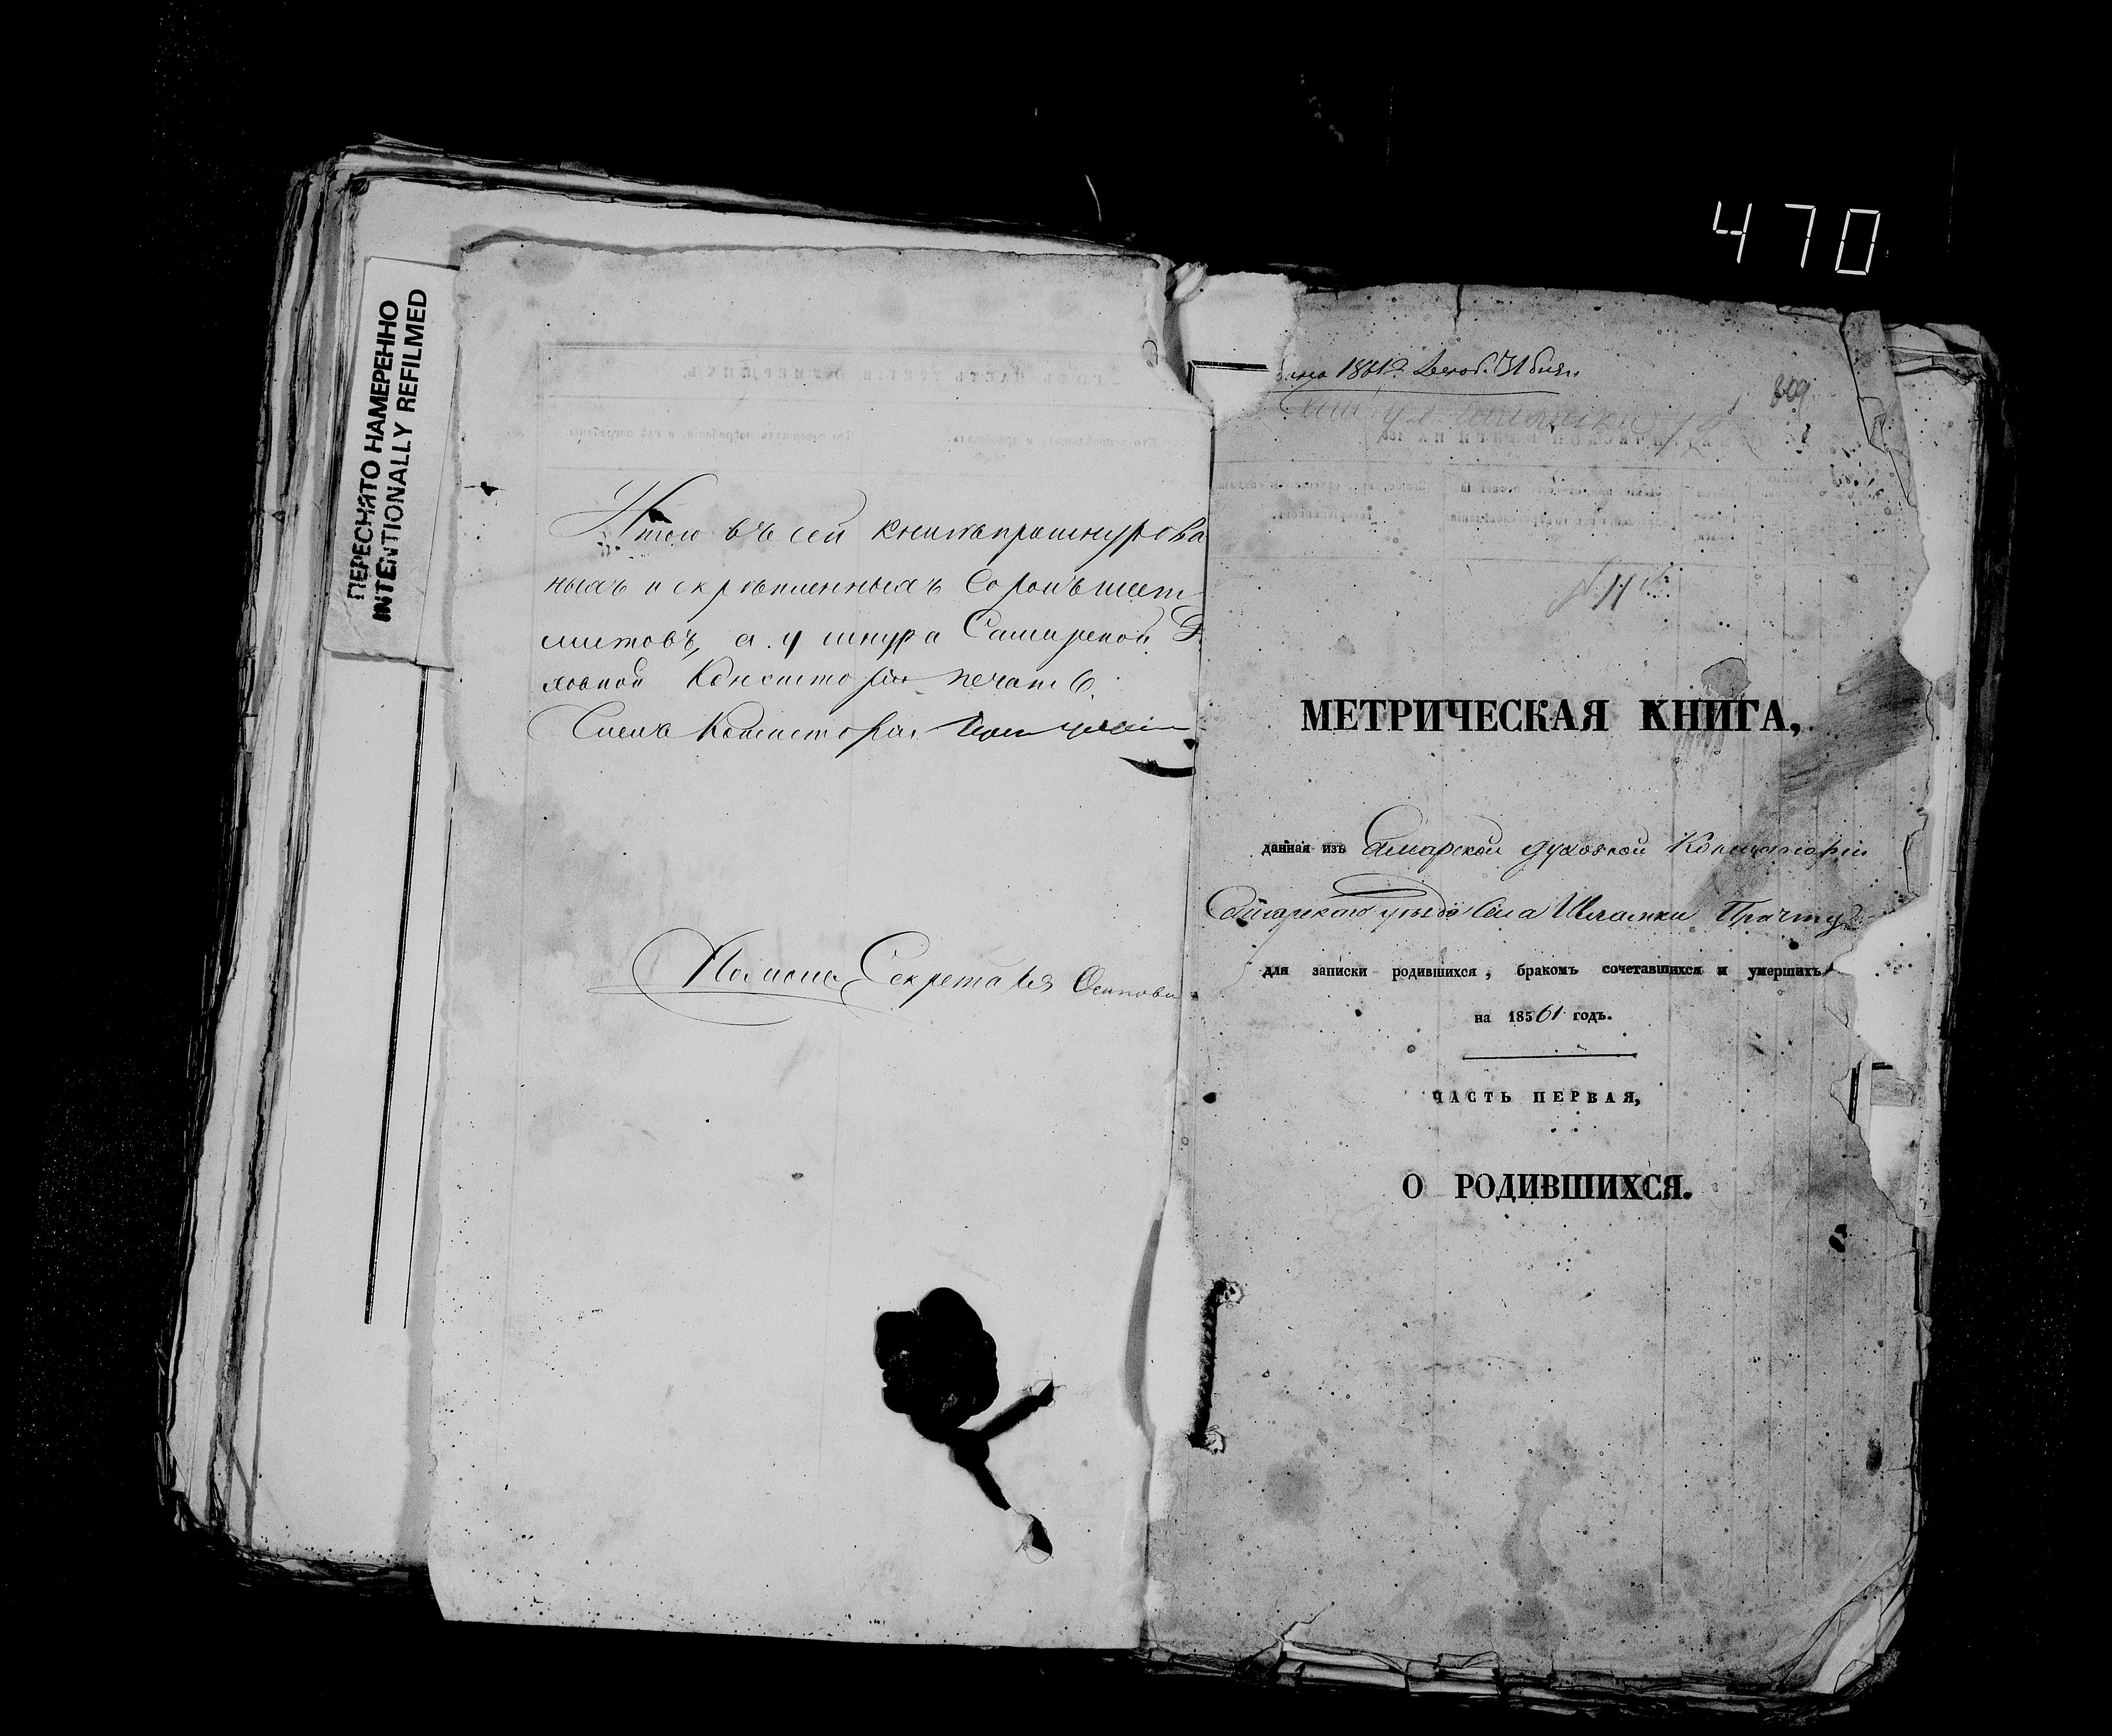 470
ПЕРЕСНЯТО НАМЕРЕННО
INTENTIONALLY REFILMED
Итого въ сей книгѣ прошнурова
ныхъ и скрѣпленныхъ Сорокъ шесть
листовъ, а у шнура Самарской Д
ховной Консисторіи печать.
Членъ Консисторіи
Помощ. Секретаря Осиповъ
1861 г. Декаб. 31 дня.
809
МЕТРИЧЕСКАЯ КНИГА,
данная изъ Самарской духовной Консисторіи
Самарскаго уѣзда Села Шламки Причту
для записки родившихся, бракомъ сочетавшихся и умершихъ
на 18561 годъ.
ЧАСТЬ ПЕРВАЯ,
О РОДИВШИХСЯ.